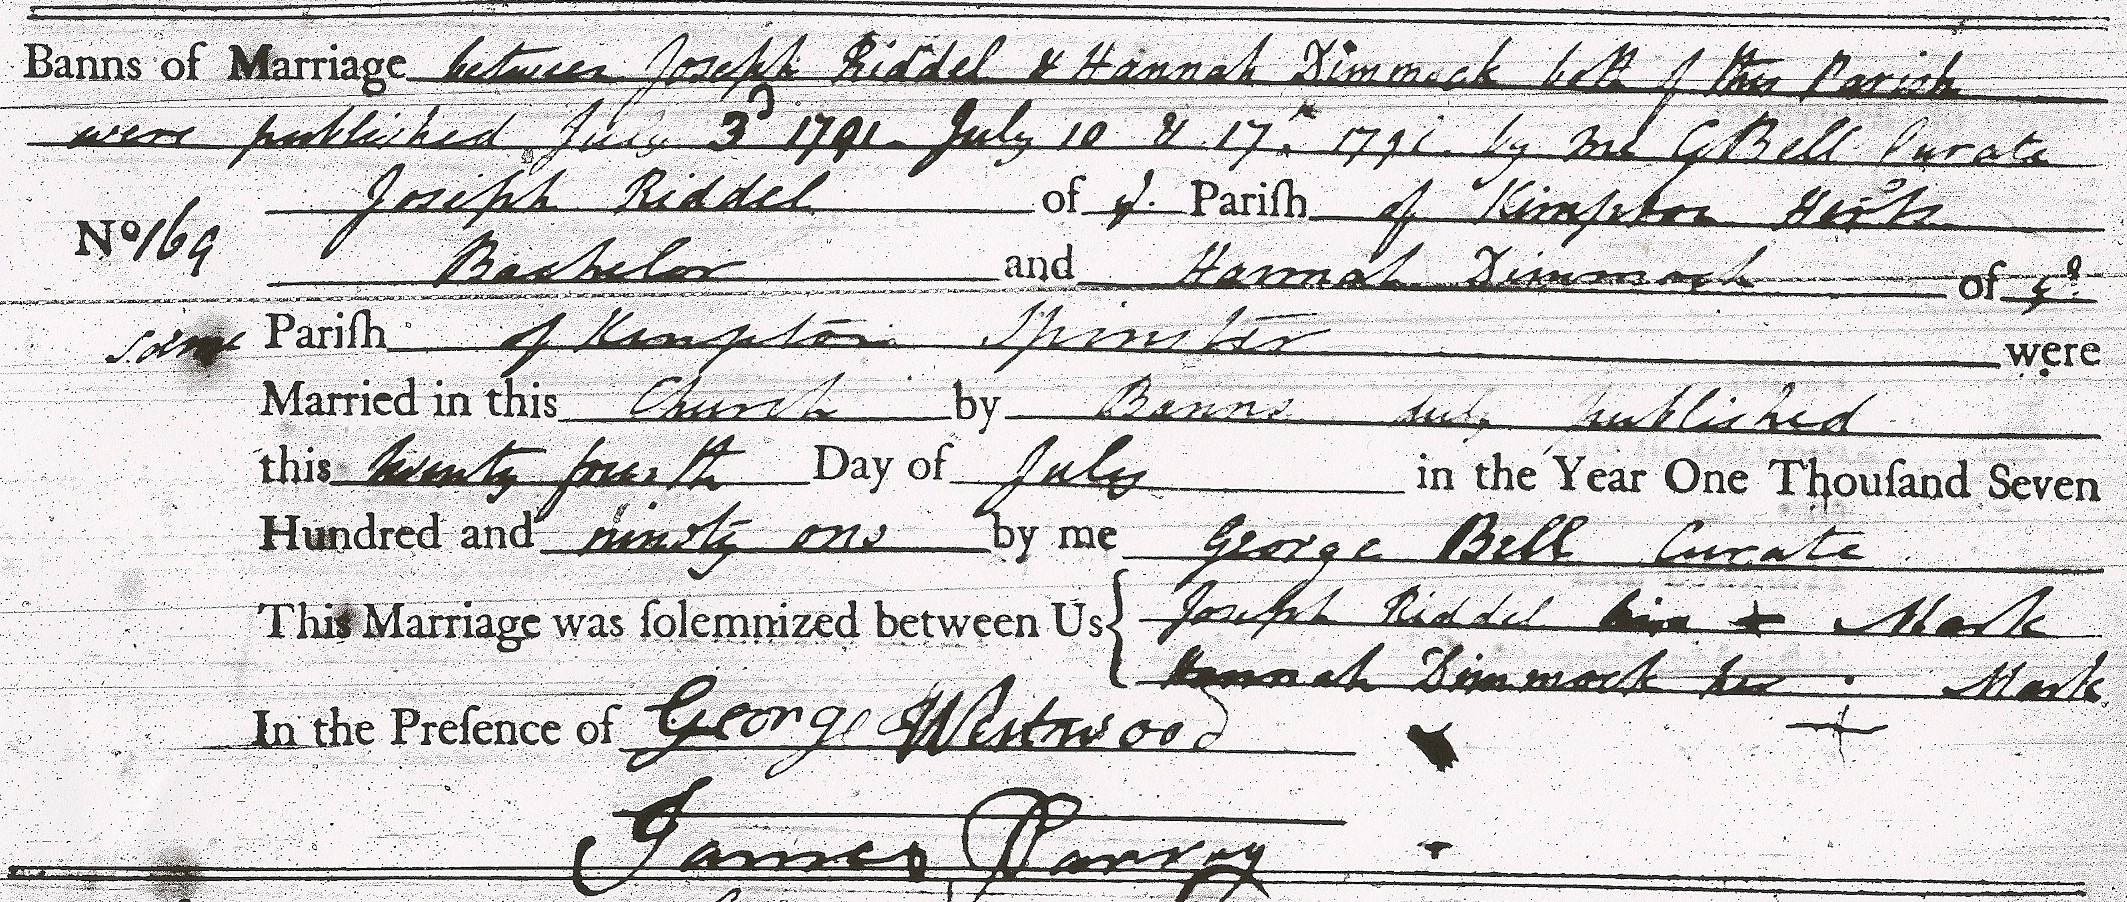 Banns of Marriage between Joseph Riddel & Hannah Dimmock both of this Parish
were published July 3d 1791. July 10 & 17th 1791. by me G Bell Curate
Joseph Riddel of ye. Pariſh of Kimpton Herts
No 169
Bachelor and Hannah Dimmock of ye.
same Pariſh of Kimpton Spinster were
Married in this Church by Banns duly published
this twenty fourth Day of July in the Year One Thouſand Seven
Hundred and ninety one by me George Bell Curate
This Marriage was ſolemnized between Us { Joseph Riddel his + Mark
Hannah Dimmock her + Mark.
In the Preſence of George Westwood
James Parry